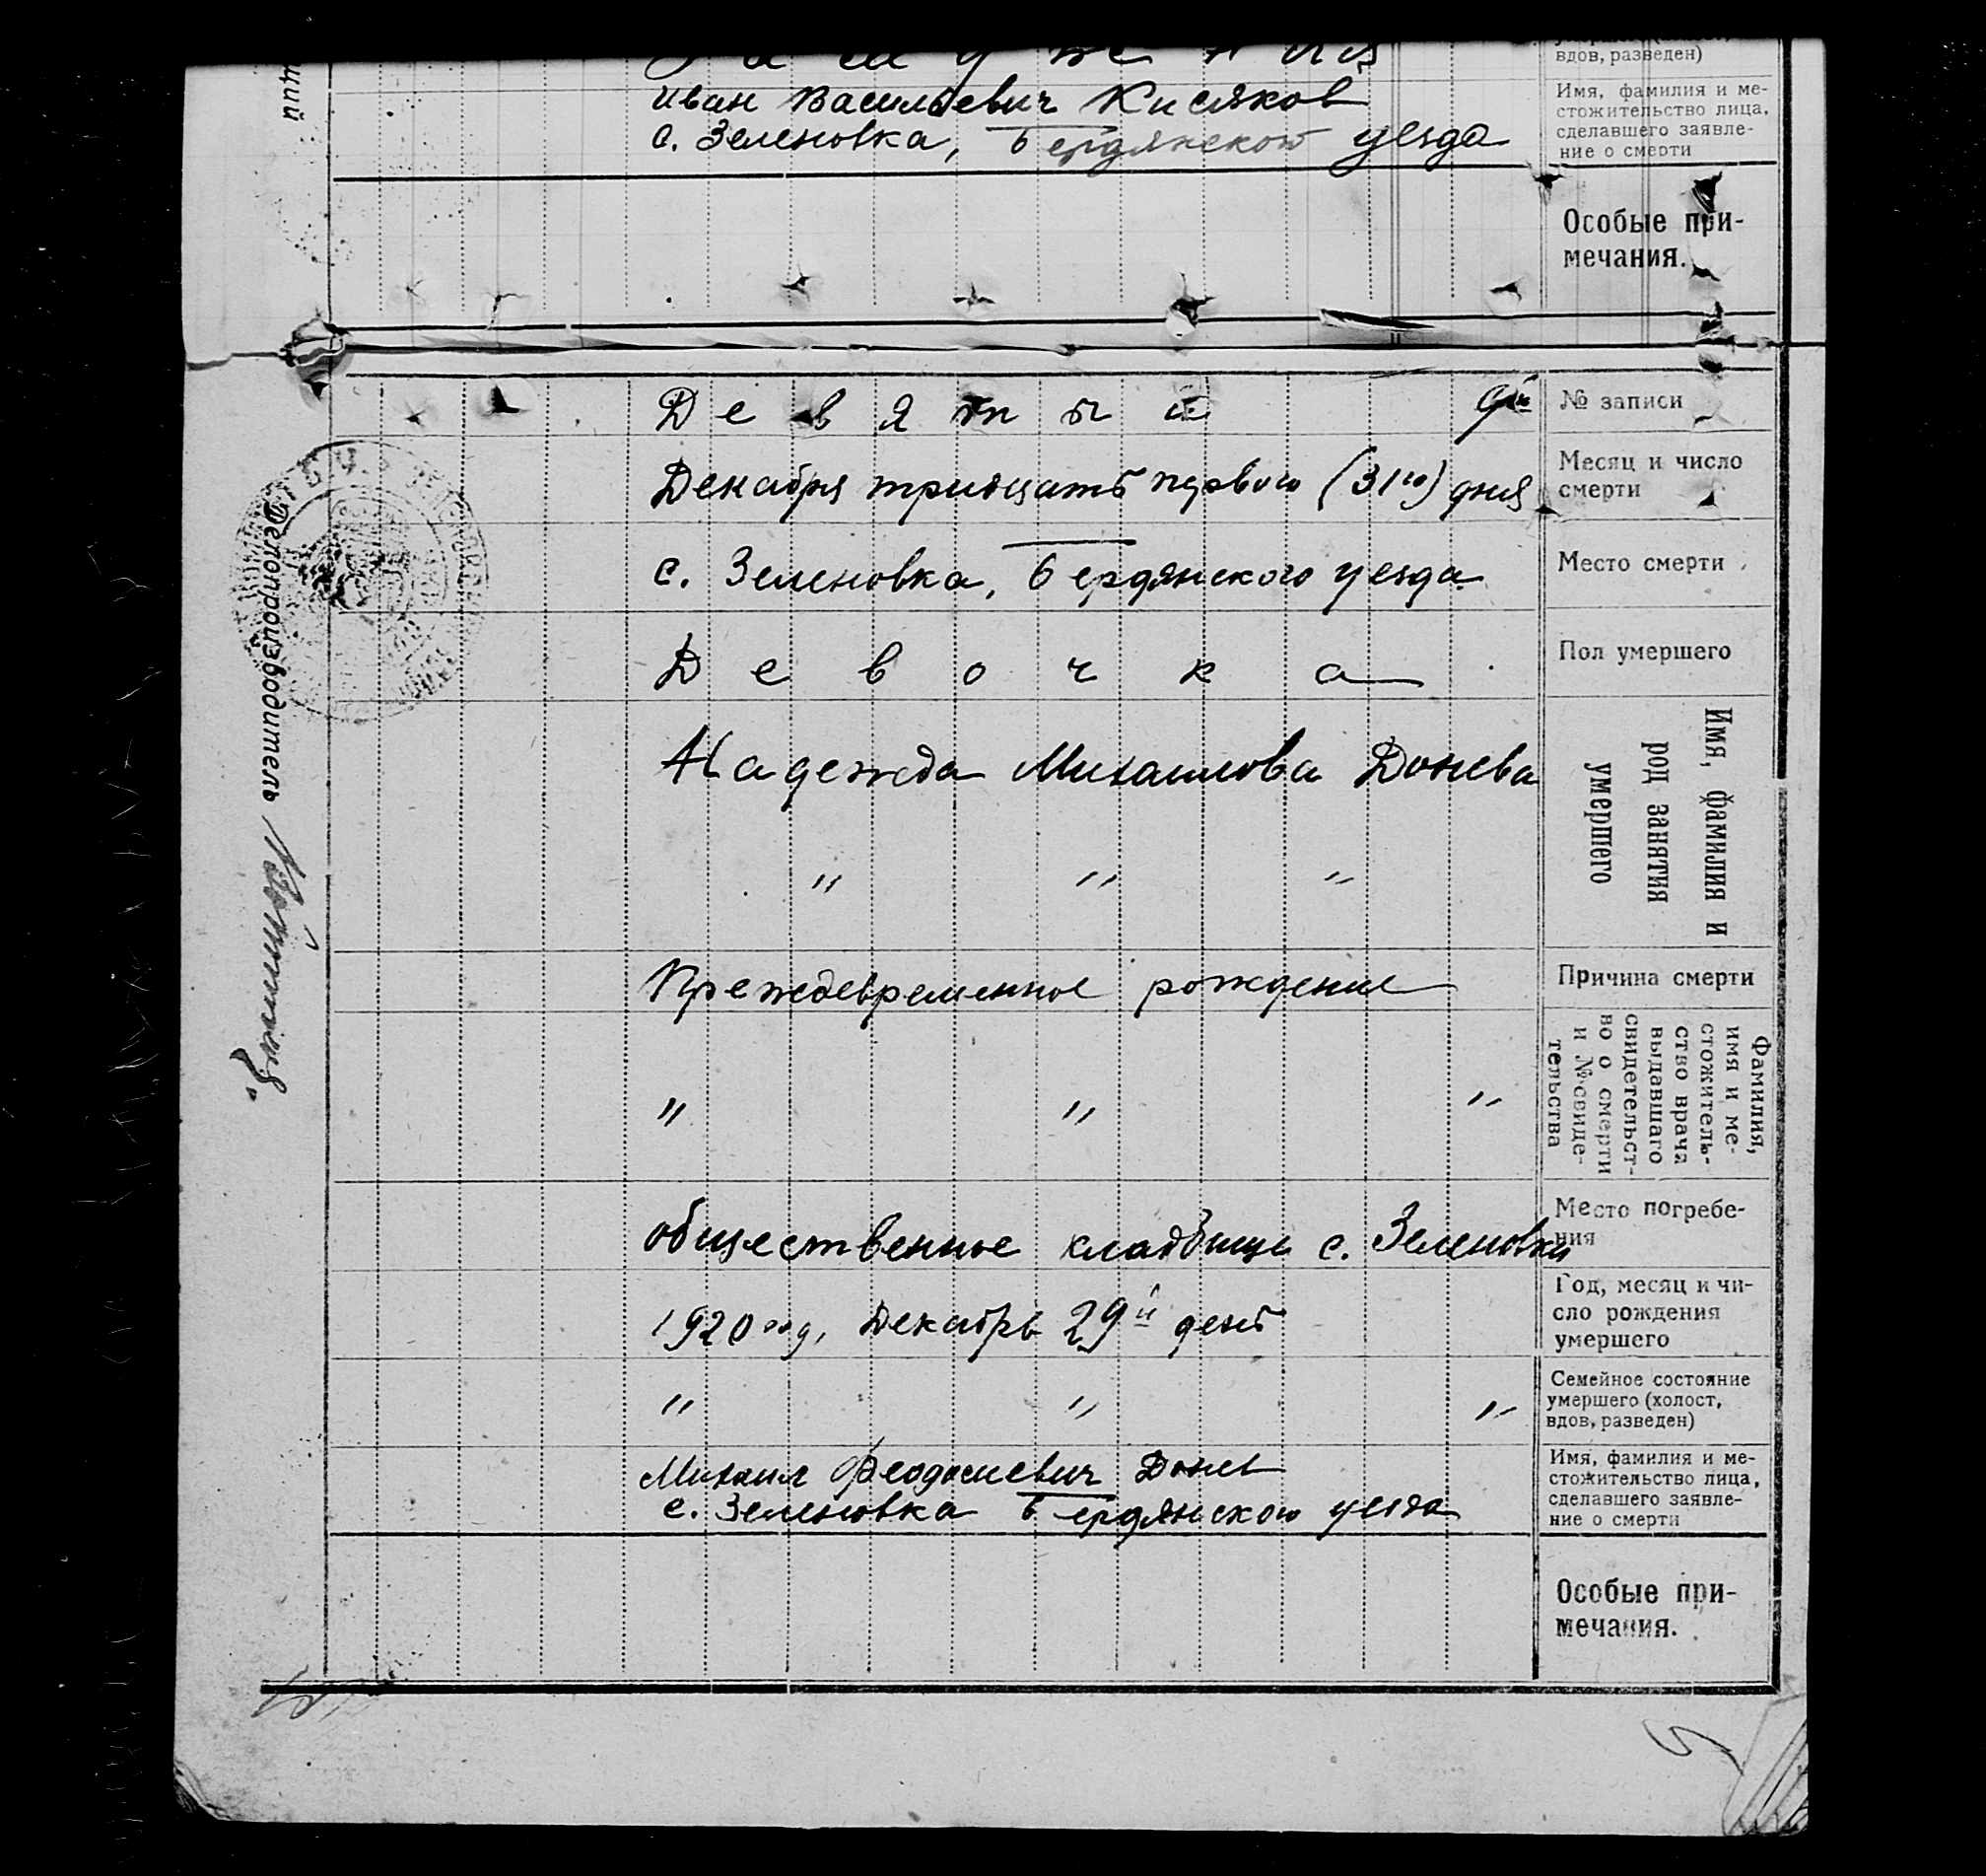 вдов, разведен)
Иван Васильевич Кисяков
с. Зеленовка, Бердянского уезда
Имя, фамилия и ме-
стожительство лица,
сделавшего заявле-
ние о смерти
Особые при-
мечания.
Девятый 9й
№ записи
Декабря тридцать первого (31го) дня
Месяц и число
смерти
с. Зеленовка, Бердянского уезда
Место смерти
Девочка
Пол умершего
Надежда Михаилова Донева
" " "
Имя, фамилия и
род занятия
умершего
Преждевременное рождение
Причина смерти
" " "
Фамилия,
имя и ме-
стожитель-
ство врача
выдавшего
свидетельст-
во о смерти
и № свиде-
тельства
общественное кладбище с. Зеленовки
Место погребе-
ния
1920 год, Декабрь 29й день
Год, месяц и чи-
сло рождения
умершего
" " "
Семейное состояние
умершего (холост,
вдов, разведен)
Михаил Феодосиевич Донев
с. Зеленовка Бердянского уезда
Имя, фамилия и ме-
стожительство лица,
сделавшего заявле-
ние о смерти
Особые при-
мечания.
щий
Делопроизводитель